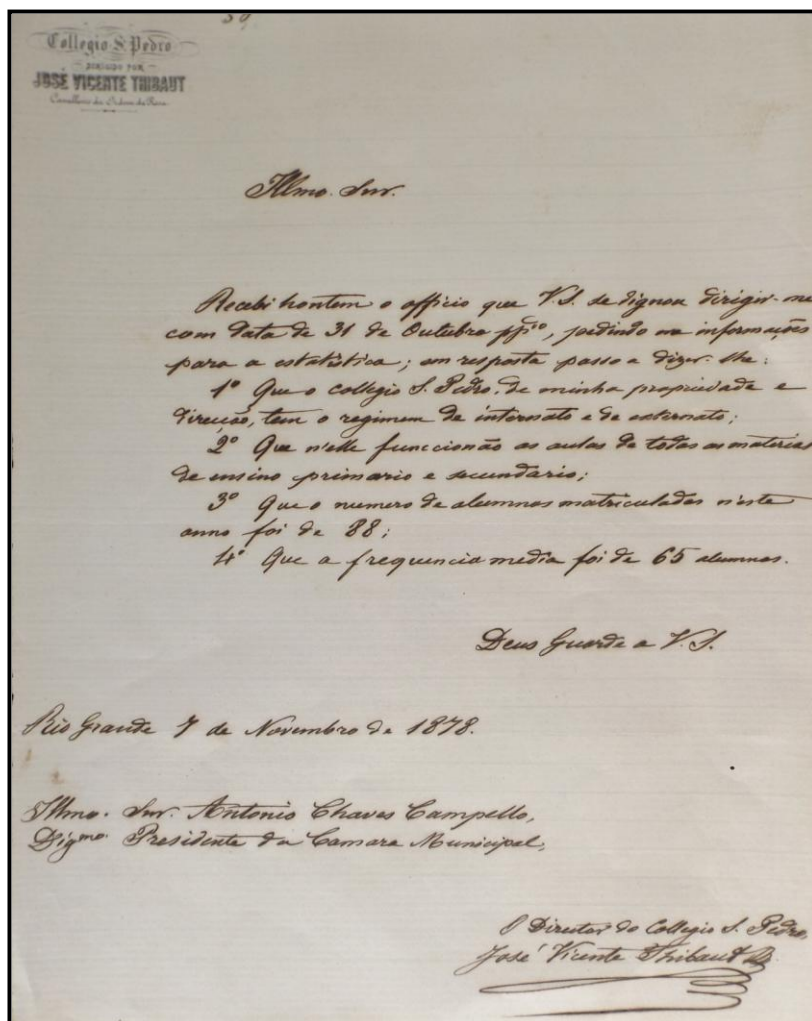 59
Collegio S. Pedro
DIRIGIDO POR
JOSÉ VICENTE THIBAUT
Cavalleiro da Ordem da Rosa
Illmo. Snr.
Recebi hontem o officio que V.S. se dignou dirigir-me
com data de 31 de Outubro ppdo, pedindo me informações
para a estatistica; em resposta passo a dizer-lhe:
1º Que o collegio S. Pedro, de minha propriedade e
direcção, tem o regimem de internato e de externato;
2º Que n'elle funccionão as aulas de todas as materias
de ensino primario e secundario;
3º Que o numero de alumnos matriculados n'este
anno foi de 88;
4º Que a frequencia media foi de 65 alumnos.
Deus Guarde a V.S.
Rio Grande 7 de Novembro de 1878.
Illmo. Snr. Antonio Chaves Campello,
Digmo. Presidente da Camara Municipal,
O Director do Collegio S. Pedro,
José Vicente Thibaut